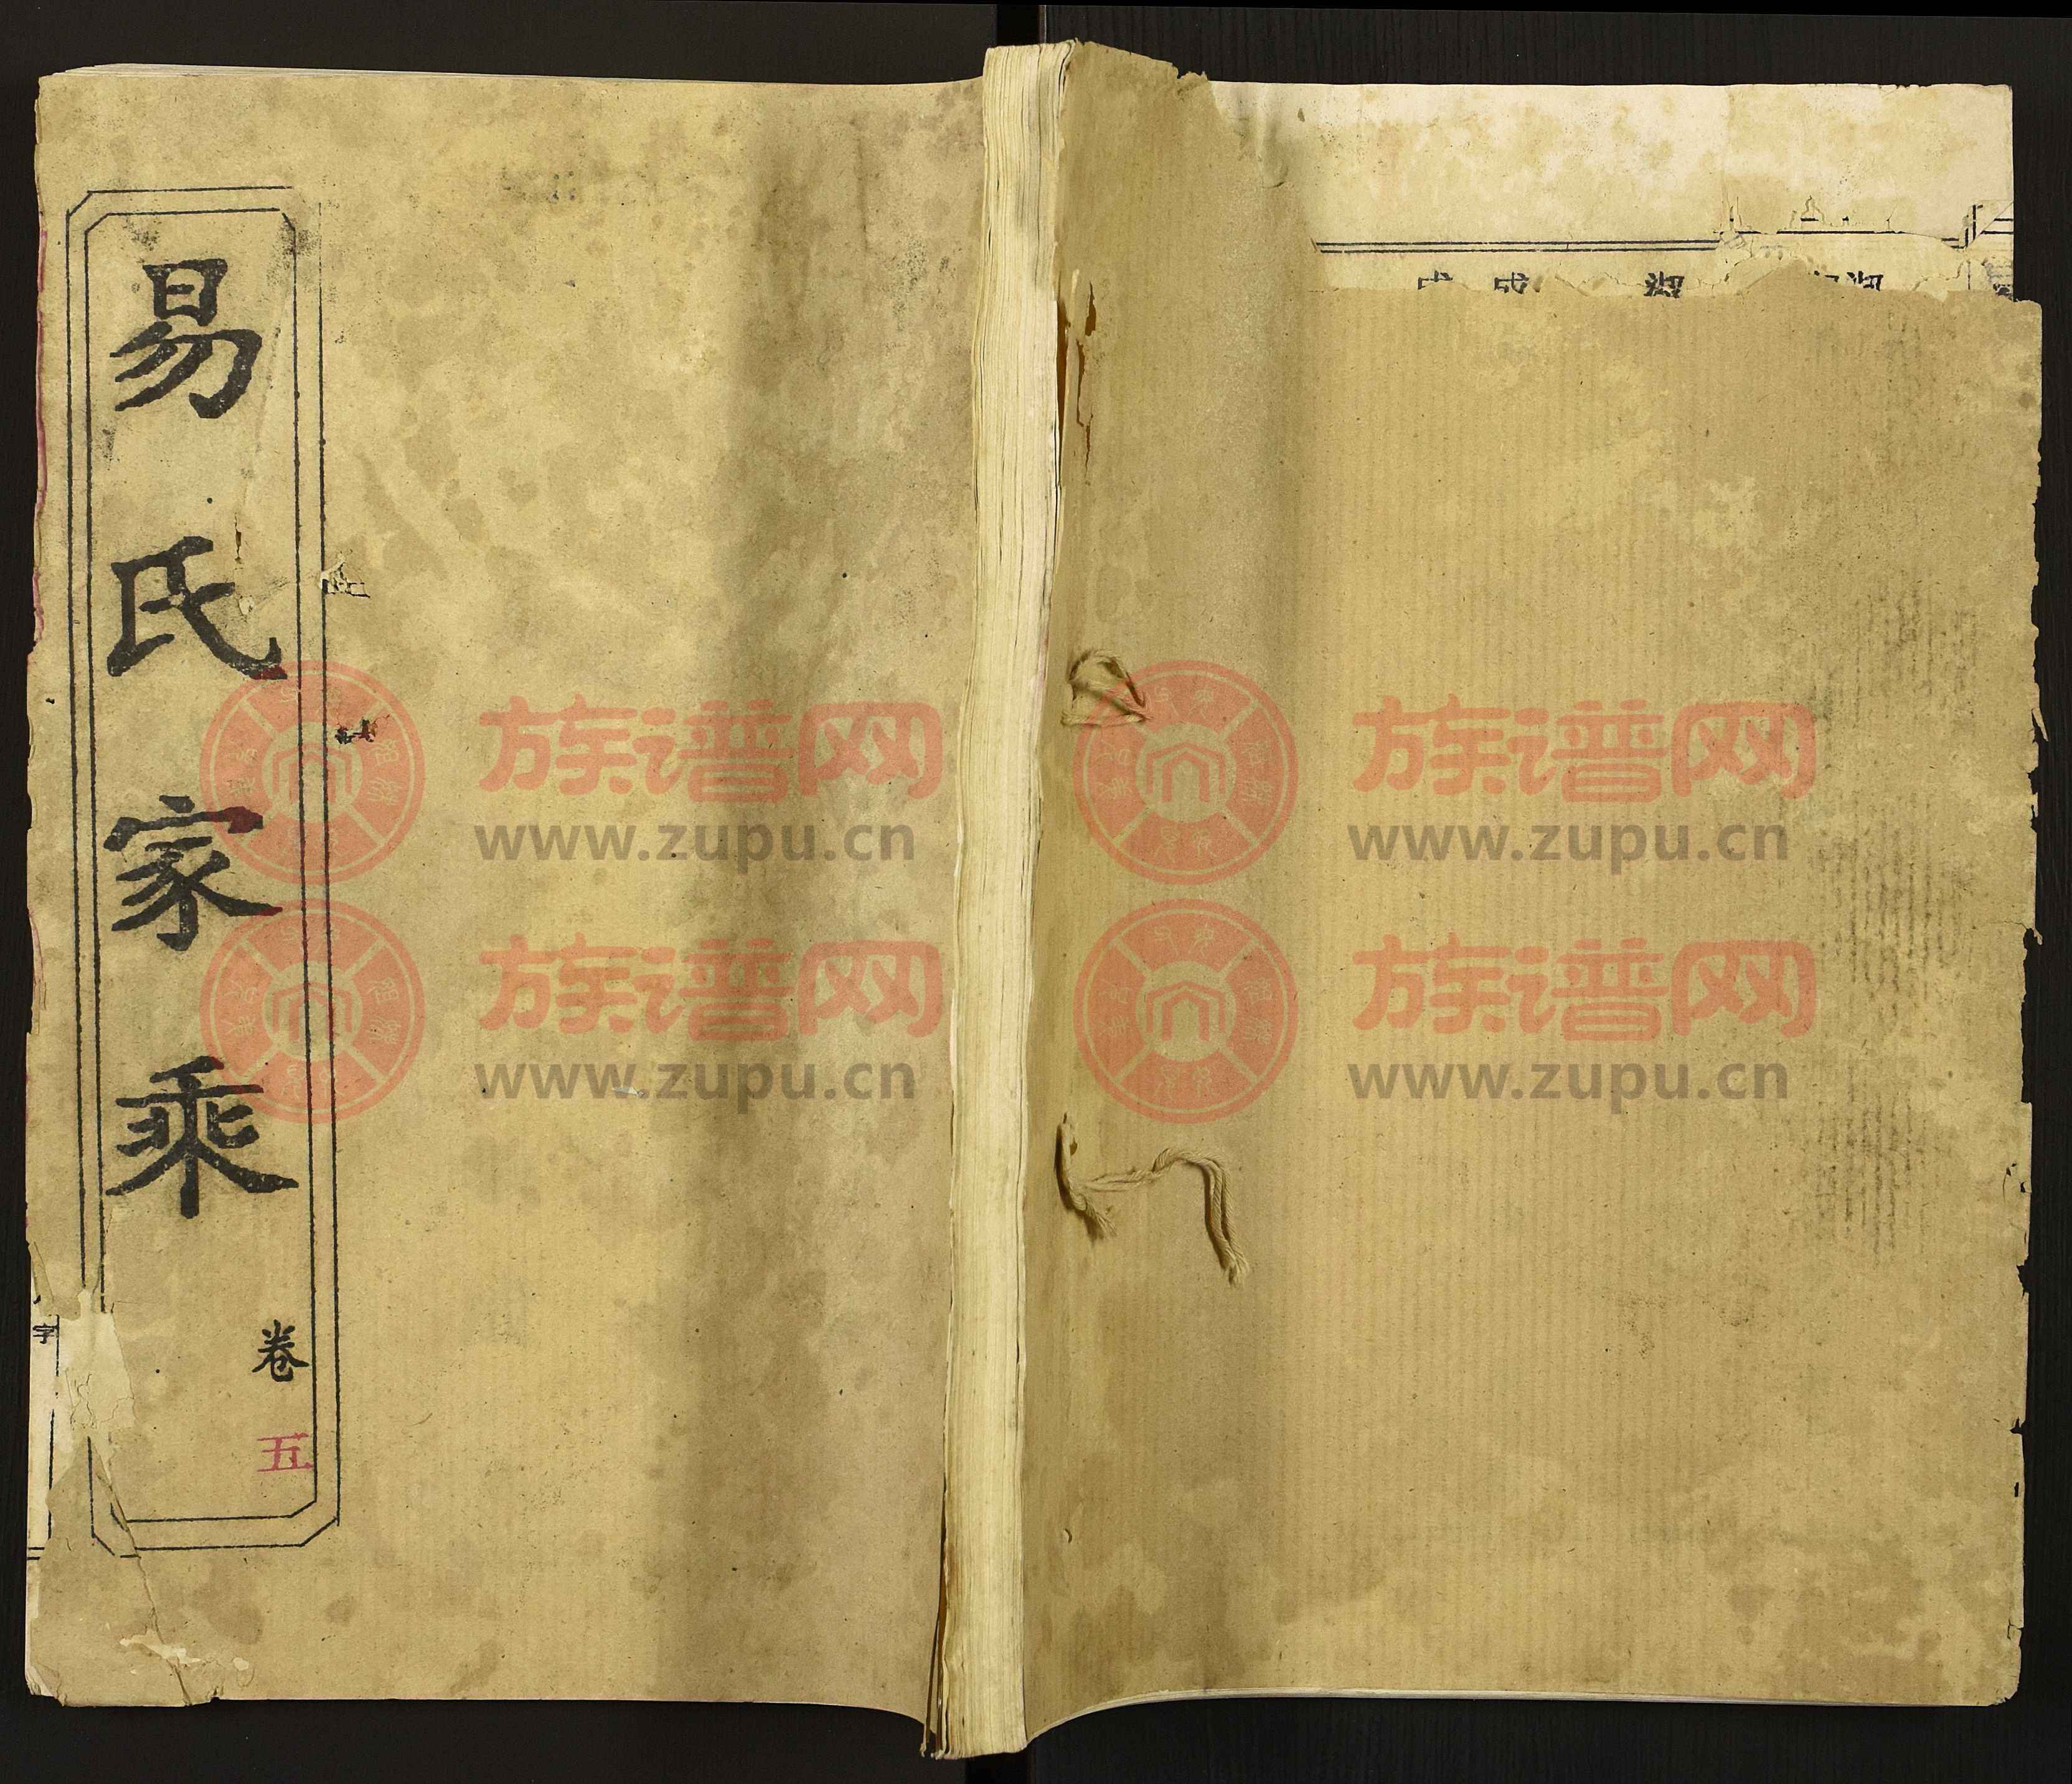 易氏家乘
卷五
字
族谱网
www.zupu.cn
族谱网
www.zupu.cn
族谱网
www.zupu.cn
族谱网
www.zupu.cn